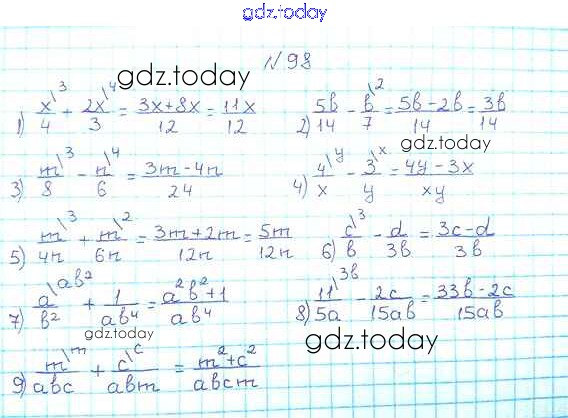 gdz.today
№98
gdz.today
1) x\3/4 + 2x\4/3 = 3x+8x/12 = 11x/12 2) 5b/14 - b\2/7 = 5b-2b/14 = 3b/14
gdz.today
3) m\3/8 - n\4/6 = 3m-4n/24 4) 4\y/x - 3\x/y = 4y-3x/xy
5) m\3/4n + m\2/6n = 3m+2m/12n = 5m/12n 6) c\3/b - d/3b = 3c-d/3b
7) a\ab²/b² + 1/ab⁴ = a²b²+1/ab⁴ 8) 11\3b/5a - 2c/15ab = 33b-2c/15ab
gdz.today
gdz.today
9) m\m/abc + c\c/abm = m²+c²/abcm